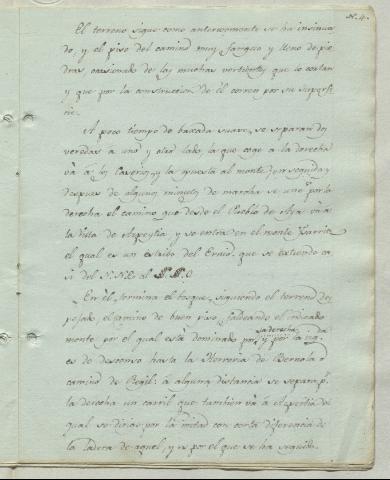 N. 4.
El terreno sigue como anteriormente se ha insinua
do, y el piso del camino muy fangoso y lleno de pie
dras ocasionado de las muchas vertientes que lo cortan
y que por la construccion de él corren por su superfi
cie.
A poco tiempo de baxada suave, se separan dos
veredas a uno y otro lado, la que coge a la derecha
và à los Caserios, y la opuesta al monte; en seguida y
despues de algunos minutos de marcha se une por la
derecha el camino que desde el Pueblo de Aya và a
la vista de Azpeytia, y se entra en el monte
el qual es un estribo del Ernio, que se extiende ca
si del N.N.E. al O
En èl, termina el bosque, siguiendo el terreno des
pejado, el camino de buen piso, faldeando el indicado
monte por el qual está dominado por su derecha, y por la
es de descenso hasta la Herreria de
camino de Regil: à alguna distancia se separa pr.
la derecha un carril que tambien và à Azpeitia el
qual se dirige por la mitad con corta diferencia de
la ladera de aquel, y es por el que se ha seguido.